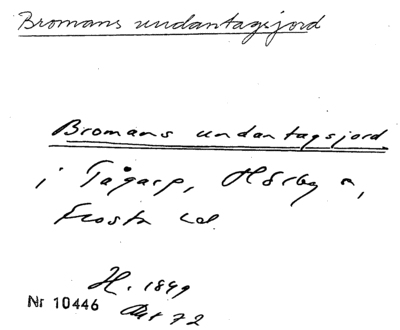 Bromans undantagsjord
Bromans undantagsjord
i Tågarp, Hörby sn,
Frosta hd.
H. 1849
Nr 10446 Akt 72